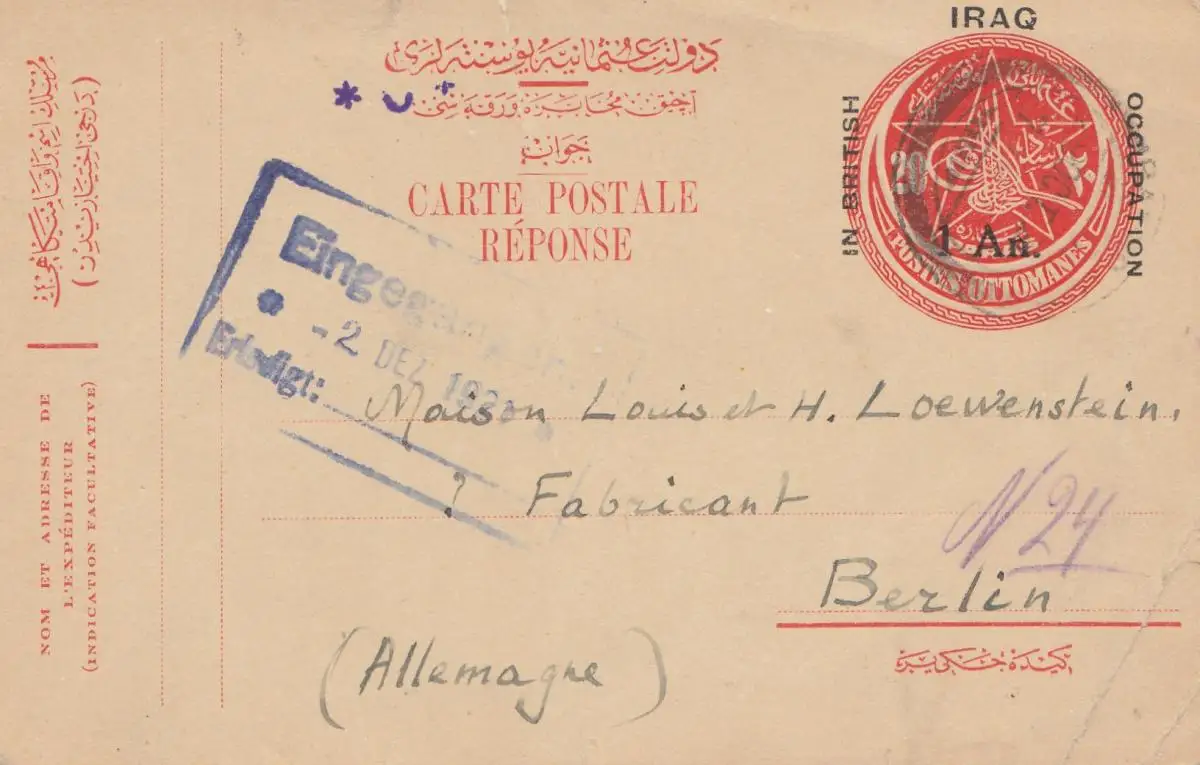 IRAQ
IN BRITISH
OCCUPATION
دولت عثمانیه پوسته لری
آچیق مخابره ورقه سی
جواب
CARTE POSTALE
RÉPONSE
20
٢٠
1 An.
POSTES OTTOMANES
Eingegangen
-2 DEZ.
Erledigt:
Maison Louis et H. Loewenstein,
? Fabricant
N 24
Berlin
(Allemagne)
NOM ET ADRESSE DE
L'EXPÉDITEUR
(INDICATION FACULTATIVE)